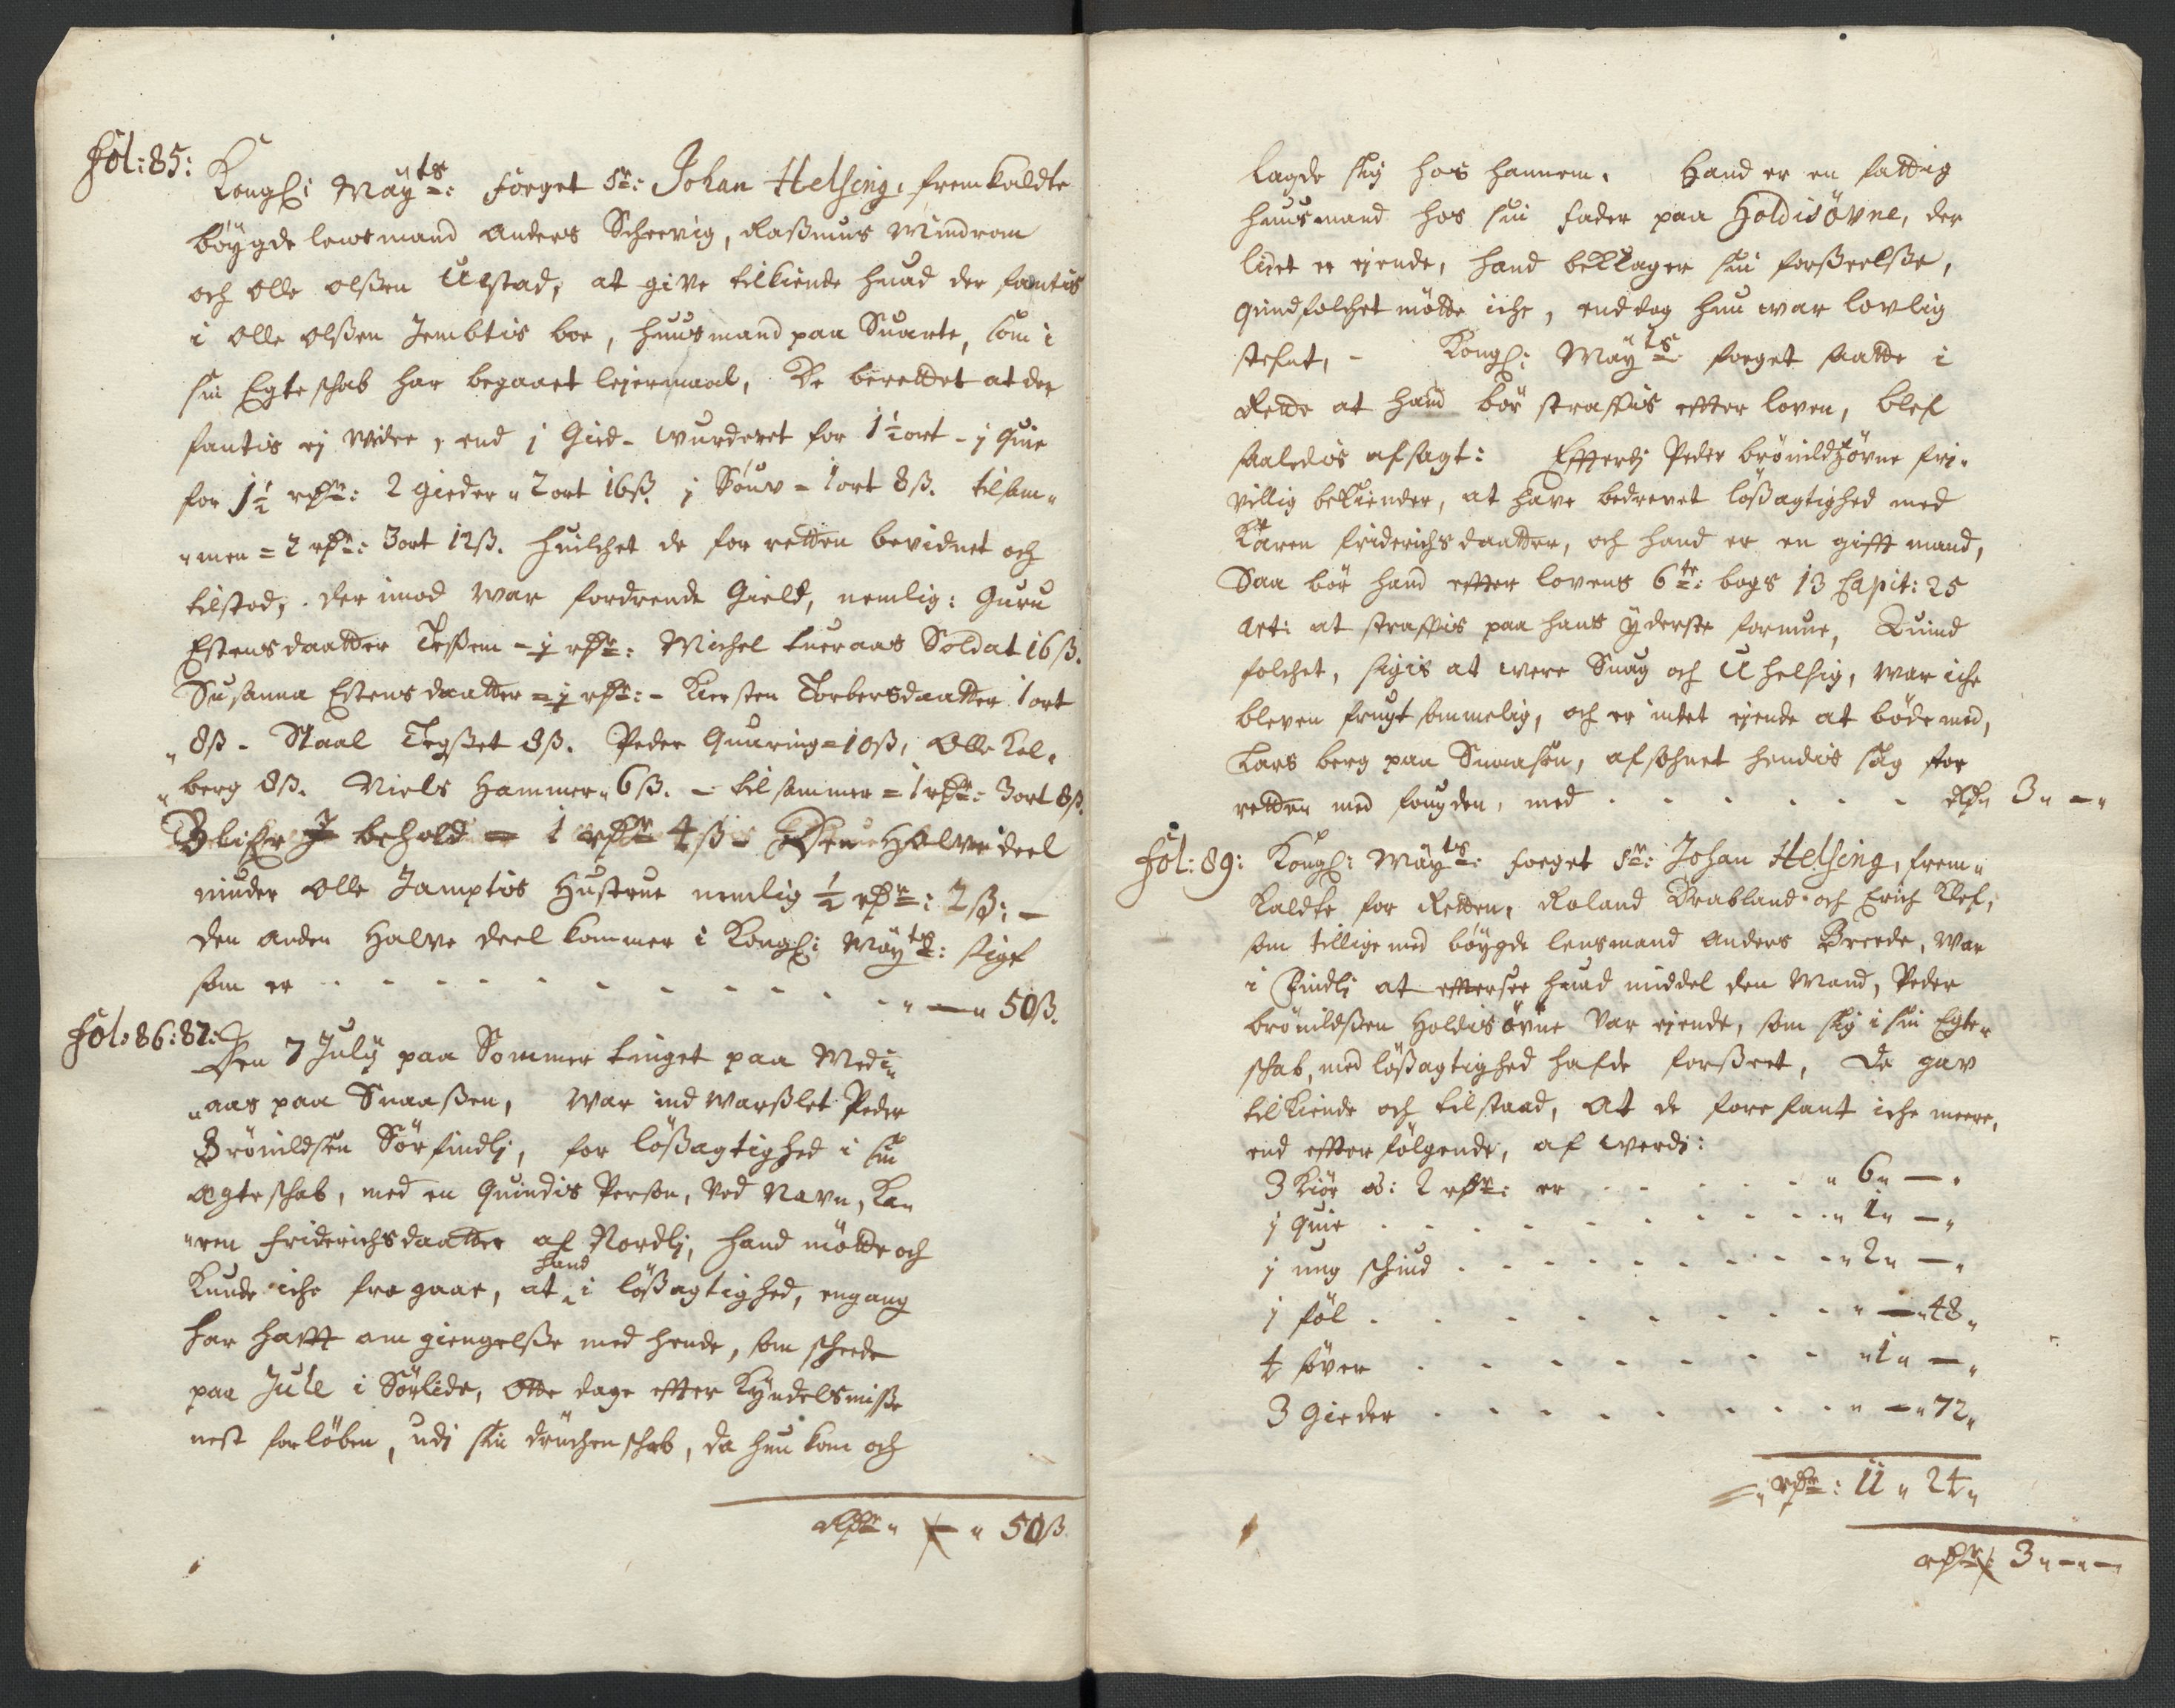 Fol: 85:
Kongl: Mayts: foeget Sr: Johan Helsing, fremkaldte
böygde lensmand Anders Scheevig, Rasmus Mindrom
och Olle Olsßen Ulstad, at give tilkiende huad der fantis
i Olle Olßen Jembtis boe, huusmand paa Suarte, som i
sin Egteschab har begaaet lejermaal, De berettet at der
fantis ej videre, end j Gied - wurderet for 1½ ort - j quie
for 1½ rdr: 2 gieder " 2 ort 16ß. j Souv = 1 ort 8ß. tilsam"
"men = 2 rdr: 3 ort 12ß. huilchet de for retten bevidnet och
tilstod, der imod war fordrende Gield, nemlig: Guru
Estensdaatter Teßem - j rdr: Michel Lueraas Soldat 16ß.
Susanna Estensdaatter = j rdr: - Kiersten Torbersdaatter 1 ort
" 8ß - Staal Tegßet 8ß. Peder Quaring = 10ß, Olle Kel"
" berg 8ß. Niels Hammer " 6ß. - tilsammen = 1 rdr: 3 ort 8ß.
Blifr J behold = 1 rdr 4ß - Den Halve deel
niuder Olle Jamptis Hustrue nemlig ½ rdr: 2ß: -
den anden Halve deel kommer i Kongl: Mayts:
som er - - - - - - - - - - " — " 50ß.
Fol: 86: 87:
Den 7 July paa Sommer tinget paa Medi"
"aas paa Snaaßen, war ind warßlet Peder
Brönildsen Sörfindlj, for lößagtighed i sin
ægteschab, med en quindis Person, ved Navn, Ka"
"ren Friderichsdaatter af Nordlj, hand mötte och
kunde iche fragaae, at hand i lößagtighed, engang
har hafft omgiengelße med hende, som scheede
paa Jule i Sörlide, Otte dage effter Kyndelsmisße
nest forlöben, udj sin druchenschab, da hun kom och
rdr " — " 50ß.
lagde sig hos hannem. Hand er en fattig
huusmand hos sin fader paa Holdisövne, der
lidet er ejende, hand beklager sin forßeelße,
quindfolchet mötte iche, enddog hun war lovlig
stefnt, - Kongl: Mayts foeget satte i
Rette at hand bör straffis effter loven, blef
saaledis afsagt: Effterdj Peder brönildzövne fri"
villig bekiender, at have bedrevet lößagtighed med
Karen Friderichsdaatter, och hand er en gifft mand,
Saa bör hand effter lovens 6te: bogs 13 Capit: 25
Art: at straffis paa hans yderste formue, Quind
folchet, sigis at were Suag och Uhelsig, war iche
bleven frugtsommelig, och er intet ejende at böde med,
Lars berg paa Snaasen, afsohnet hendis sag for
retten med fougden, med - - - - - - rdr 3 " — "
Fol: 89: Kongl: Mayts: foeget Sr: Johan Helsing, frem"
kaldte for Retten, Roland Brabland och Erich Klef,
som tillige med böygde lensmand Anders Breede, war
i Findlj at efftersee huad middel den Mand, Peder
brönildßen Holdisövne var ejende, som sig i sin Egte"
schab, med lößagtighed hafde forßeet, De gav
tilkiende och tilstaad, At de forefant iche meere,
end effterfölgende, af werdj:
3 kiör a: 2 rdr: er - - - - - " 6 " — "
j quie - - - - - - - - " 1 " — "
j ung schiud - - - - - - - - " 2 " — "
j föl - - - - - - - - " — " 48 "
4 söver - - - - - - - - " 1 " — "
3 gieder - - - - - - - - " — " 72 "
rdr: 11 " 24 "
rdr: 3 " — " —